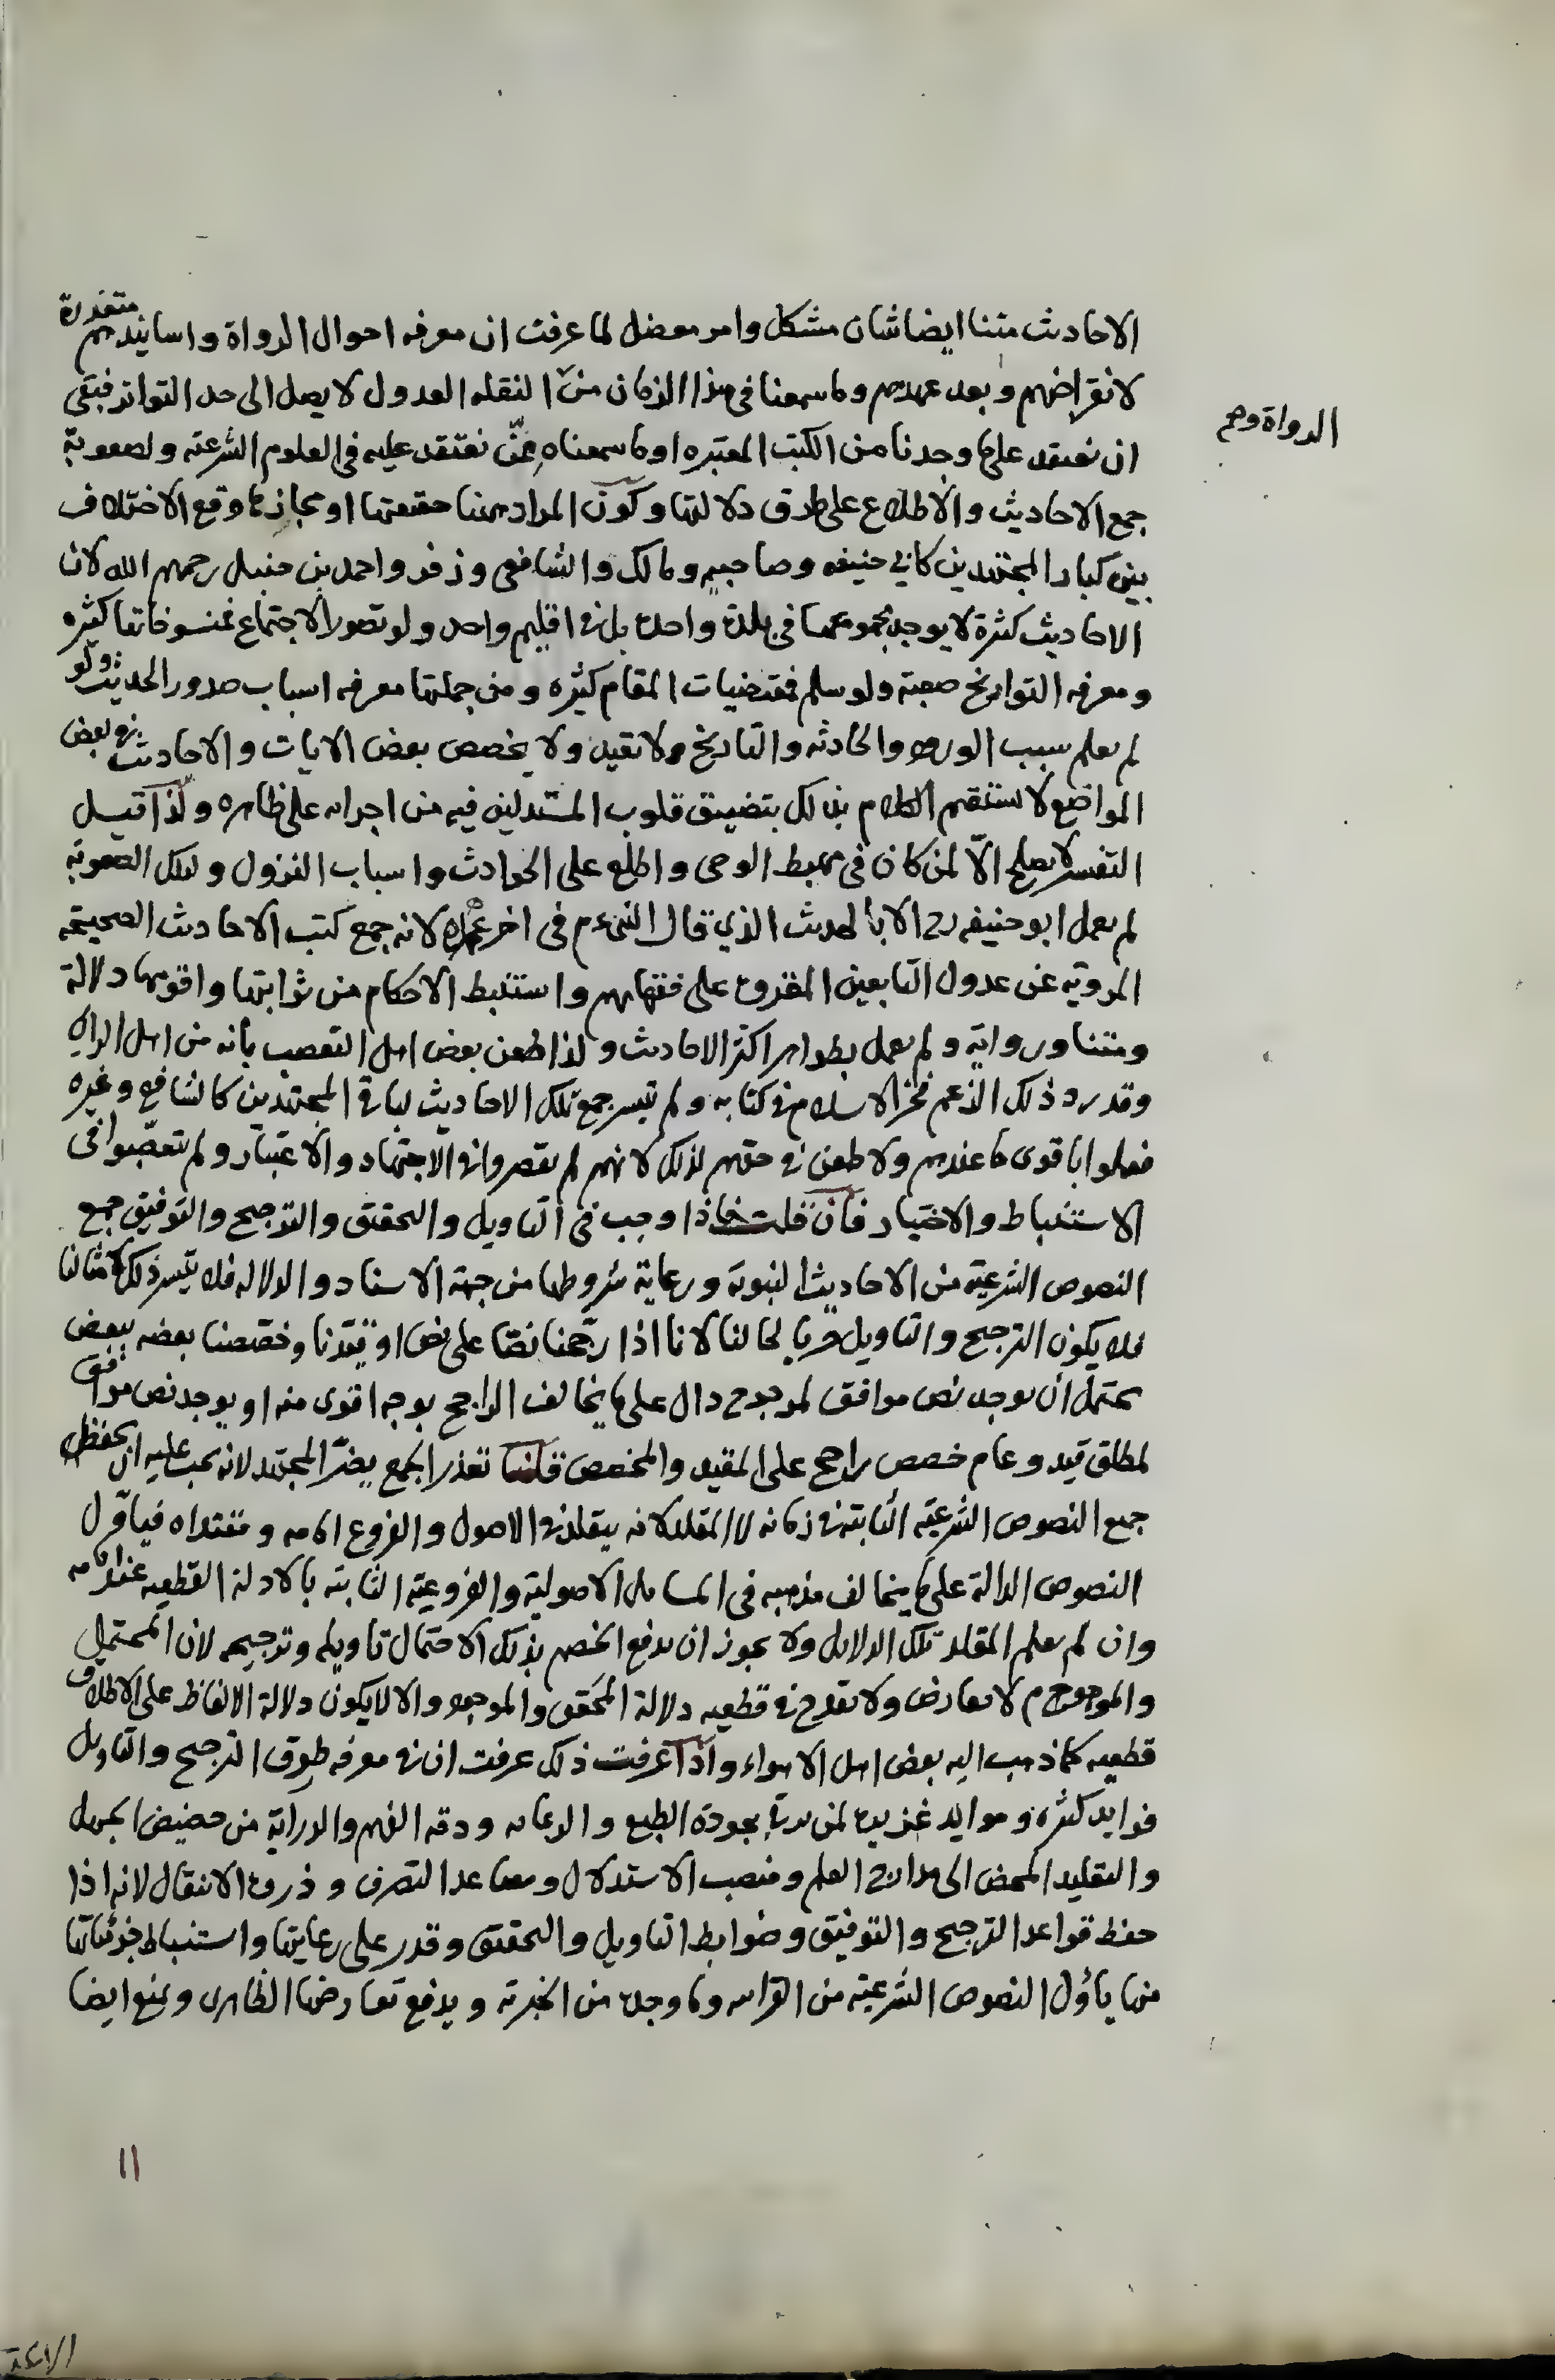 الاحاديث متنا ايضا شان مشكل وامر معضل لما عرفت ان معرفه احوال الرواة واسانيدهم متعذرة
لانقراضهم وبعد عهدهم وما سمعنا في هذا الزمان من النقله العدول لا يصل الى حد التواتر فبقى
الرواة وصح
ان نعتمد على ما وجدنا من الكتب المعتبره او ما سمعناه عمّن نعتقد عليه في العلوم الشرعية ولصعوبة
جمع الاحاديث والاطلاع على طرق دلالتها وكون المراد منها حقيقتها او مجازها وقع الاختلاف
بين كبار المجتهدين كابي حنيفه وصاحبيه ومالك والشافعي وزفر واحمد بن حنبل رحمهم الله لان
الاحاديث كثرة لا يوجد مجموعها في بلدة واحدة بل في اقليم واحد ولو تصور الاجتماع فمنسوخاتها كثيره
ومعرفه التواريخ صعبة ولو سلم فمقتضيات المقام كثيره ومن جملتها معرفه اسباب صدور الحديث ولو
لم يعلم سبب الورود والحادثه والتاريخ ولا تقيد ولا يخصص بعض الايات والاحاديث في بعض
المواضع لا يستقيم الكلام بذلك بتضيق قلوب المستدلين فيه من اجرائه على ظاهره ولذا قيل
التفسير لا يصلح الّا لمن كان في مهبط الوحى واطلع على الحوادث واسباب النزول ولتلك الصعوبة
لم يعمل ابو حنيفه رح الا بالحديث الذي قال النبي ءم في اخر عمره لانه جمع كتب الاحاديث الصحيحة
المروية عن عدول التابعين المقروءة على فقهائهم واستنبط الاحكام من ثوابتها واقويها دلالة
ومتنا ورواية ولم يعمل بظواهر اكثر الاحاديث ولذا طعن بعض اهل التعصب بانه من اهل الراي
وقد رد ذلك الزعم فخر الاسلام في كتابه ولم تيسر جمع تلك الاحاديث لباقي المجتهدين كالشافعي وغيره
فعملوا باقوى ما عندهم ولا طعن في حقهم لذلك لانهم لم يقصروا في الاجتهاد والاعتبار ولم يتعصّبوا في
الاستنباط والاختيار فان قلت فاذا وجب في التاويل والتحقيق والترجيح والتوفيق جمع
النصوص الشرعية من الاحاديث النبوية ورعاية شروطها من جهة الاسناد والدلاله فلا يتيسر ذلك لامثالنا
فلا يكون الترجيح والتاويل حريا لحالنا لانا اذا رجّحنا نصّا على نص او قيّدنا وخصّصنا بعضه ببعض
يحتمل ان يوجد نص موافق لمرجوح دال على ما يخالف الراجح بوجه اقوى منه او يوجد نص موافق
لمطلق قيد وعام خصص راجح على المقيد والمخصص قلنا تعذر الجمع يضرّ المجتهد لانه يجب عليه ان يحفظ
جمع النصوص الشرعية الثابتة في زمانه لا المقلد لانه يقلد في الاصول والفروع امامه ومقتداه فياوّل
النصوص الدالة على ما يخالف مذهبه في المسايل الاصولية والفروعية الثابتة بالادلة القطعيه عند امامه
وان لم يعلم المقلد تلك الدلايل ولا يجوز ان يدفع الخصم بذلك الاحتمال تاويله وترجيحه لان المحتمل
والموهوم لا يعارض ولا يقدح في قطعيه دلالة المحقق والموجود والا لا يكون دلالة الالفاظ على الاطلاق
قطعيه كما ذهب اليه بعض اهل الاهواء واذا عرفت ذلك عرفت ان في معرفه طرق الترجيح والتاويل
فوايد كثره وموايد غزيره لمن بجودة الطبع والرعايه ودقه الفهم والدراية من حضيض الجهل
والتقليد المحض الى مدارج العلم ومنصب الاستدلال ومصاعد التصرف وذروة الانتقال لانه اذا
حفظ قواعد الترجيح والتوفيق وضوابط التاويل والتحقيق وقدر على رعايتها واستنباط جزئياتها
منها ياؤل النصوص الشرعية من القرانيه وما وجده من الخبرية ويدفع تعارضها الظاهري ويمنع ايضا
١١